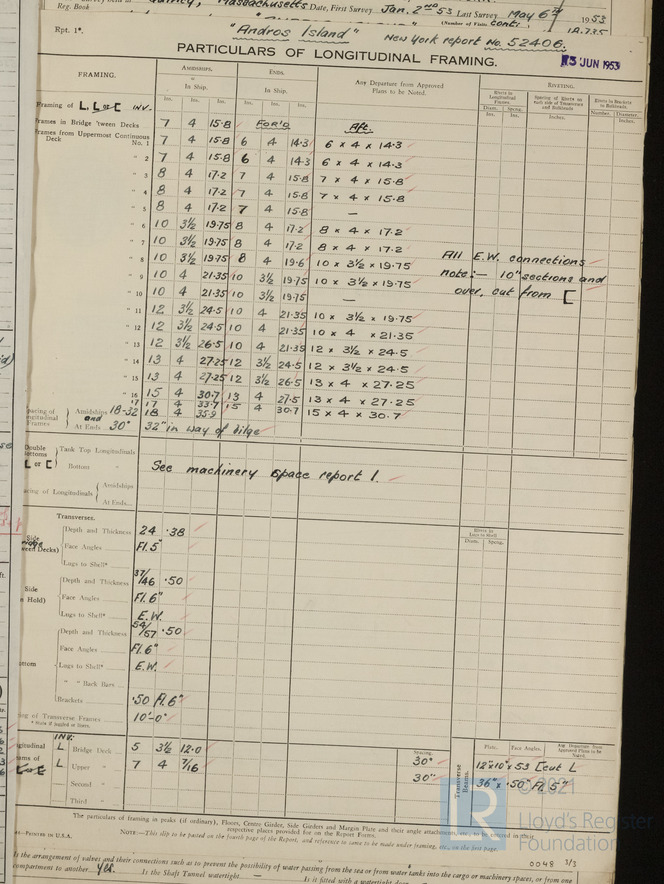 Reg. Book
Massachusetts. Date, First Survey Jan. 2nd 53 Last Survey May 6th 1953
(Number of Visits Conti.
Rpt. 1*.
"Andros Island"
New York report No. 52406.
PARTICULARS OF LONGITUDINAL FRAMING.
13 JUN 1953
FRAMING.
Amidships.
In Ship.
Ends.
In Ship.
Any Departure from Approved Plans to be Noted.
RIVETING.
Rivets in Longitudinal Frames.
Spacing of Rivets on each side of Transverses and Bulkheads
Rivets in Brackets to Bulkheads
Ins. Ins. Ins. Ins. Ins. Ins. Diam. Spcng. Ins. Inches. Number. Diameter. Inches.
Framing of L, L or [ INV.
Frames in Bridge 'tween Decks 7 4 15.8 FOR'D Aft.
Frames from Uppermost Continuous Deck No. 1 7 4 15.8 6 4 14.3 6 x 4 x 14.3
" 2 7 4 15.8 6 4 14.3 6 x 4 x 14.3
" 3 8 4 17.2 7 4 15.8 7 x 4 x 15.8
" 4 8 4 17.2 7 4 15.8 7 x 4 x 15.8
" 5 8 4 17.2 7 4 15.8 —
" 6 10 3½ 19.75 8 4 17.2 8 x 4 x 17.2
" 7 10 3½ 19.75 8 4 17.2 8 x 4 x 17.2
" 8 10 3½ 19.75 8 4 19.6 10 x 3½ x 19.75
" 9 10 4 21.35 10 3½ 19.75 10 x 3½ x 19.75
" 10 10 4 21.35 10 3½ 19.75 —
" 11 12 3½ 24.5 10 4 21.35 10 x 3½ x 19.75
" 12 12 3½ 24.5 10 4 21.35 10 x 4 x 21.35
" 13 12 3½ 26.5 10 4 21.35 12 x 3½ x 24.5
" 14 13 4 27.25 12 3½ 24.5 12 x 3½ x 24.5
" 15 13 4 27.25 12 3½ 26.5 13 x 4 x 27.25
" 16 15 4 30.7 13 4 27.5 13 x 4 x 27.25
" 17 17 4 33.7 15 4 30.7 15 x 4 x 30.7
18 18 4 35.9
All E.W. connections
note:— 10" sections and
over, cut from [
Amidships 18-32
and
At Ends 30"
32" in way of bilge
Tank Top Longitudinals
L or [ Bottom "
See machinery space report 1.
of Longitudinals Amidships
At Ends
Transverses.
Depth and Thickness 24 .38
Face Angles Fl. 5"
Lugs to Shell*
Rivets to Lugs to Shell
Diam. Spcng.
Side
Depth and Thickness 37/46 .50
Face Angles Fl. 6"
Lugs to Shell* E.W.
Depth and Thickness 54/57 .50
Face Angles Fl. 6"
Lugs to Shell* E.W.
" " Back Bars
Brackets .50 Fl. 6"
of Transverse Frames 10'-0"
INV.
L Bridge Deck 5 3½ 12.0
L Upper " 7 4 7/16
Second "
Third "
Spacing.
30"
30"
Transverse Beams.
Plate. Face Angles. Any Departure from Approved Plans to be Noted.
12" x 10" x .53 [cut L
36" x .50" Fl. 5"
The particulars of framing in peaks (if ordinary), Floors, Centre Girder, Side Girders and Margin Plate and their angle attachments, etc., to be entered in their
respective places provided for on the Report Forms.
NOTE:—This slip to be pasted on the fourth page of the Report, and reference to same to be made under framing, etc., on the first page.
© 2021
Lloyd's Register
Foundation
0048 3/3
Is the arrangement of valves and their connections such as to prevent the possibility of water passing from the sea or from water tanks into the cargo or machinery spaces, or from one
compartment to another Yes. Is the Shaft Tunnel watertight — Is it fitted with a watertight